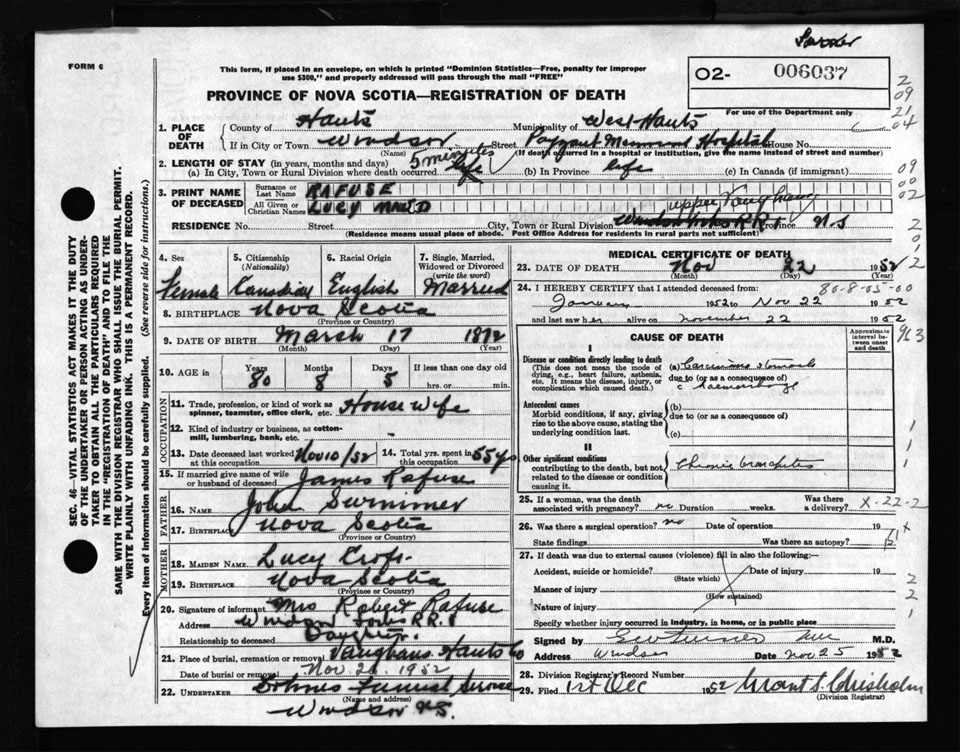 FORM 6
This form, if placed in an envelope, on which is printed "Dominion Statistics—Free, penalty for improper
use $300," and properly addressed will pass through the mail "FREE"
O2- 006037
PROVINCE OF NOVA SCOTIA—REGISTRATION OF DEATH
For use of the Department only
2
09
21
04
1. PLACE OF DEATH
County of Hants Municipality of West Hants
If in City or Town Windsor Street Payzant Memorial Hospital House No.
(Name) (If death occurred in a hospital or institution, give the name instead of street and number)
2. LENGTH OF STAY (in years, months and days)
(a) In City, Town or Rural Division where death occurred 5 minutes life (b) In Province life (c) In Canada (if immigrant)
09
00
02
3. PRINT NAME OF DECEASED
Surname or Last Name RAFUSE
All Given or Christian Names LUCY MAUD
Upper Vaughan
RESIDENCE No. Street City, Town or Rural Division Windsor Forks RR1 Province N.S
(Residence means usual place of abode. Post Office Address for residents in rural parts not sufficient)
4. Sex Female
5. Citizenship (Nationality) Canadian
6. Racial Origin English
7. Single, Married, Widowed or Divorced (write the word) Married
8. BIRTHPLACE Nova Scotia
(Province or Country)
9. DATE OF BIRTH March 17 1872
(Month) (Day) (Year)
10. AGE in Years 80 Months 8 Days 5 If less than one day old
hrs. or min.
OCCUPATION
11. Trade, profession, or kind of work as
spinner, teamster, office clerk, etc. House Wife
12. Kind of industry or business, as cotton-
mill, lumbering, bank, etc. -
13. Date deceased last worked at this occupation Nov 10/52
14. Total yrs. spent in this occupation 55 yrs
15. If married give name of wife
or husband of deceased James Rafuse
FATHER
16. Name John Swinimer
17. Birthplace Nova Scotia
(Province or Country)
MOTHER
18. MAIDEN NAME Lucy
19. BIRTHPLACE Nova Scotia
(Province or Country)
20. Signature of informant Mrs Robert Rafuse
Address Windsor Forks RR. 1
Relationship to deceased Daughter.
21. Place of burial, cremation or removal Vaughans Hants Co
Date of burial or removal Nov 1952
22. UNDERTAKER Funeral Service
(Name and address)
Windsor N.S.
MEDICAL CERTIFICATE OF DEATH
23. DATE OF DEATH Nov 22 1952
(Month) (Day) (Year)
24. I HEREBY CERTIFY that I attended deceased from: 80-8-05-00
January 1952 to Nov 22 1952
and last saw her alive on November 22 1952
CAUSE OF DEATH
Approximate interval between onset and death
I
Disease or condition directly leading to death
(This does not mean the mode of dying, e.g., heart failure, asthenia, etc. It means the disease, injury, or complication which caused death.)
(a) Carcinoma stomach
due to (or as a consequence of)
c haemorrhage
Antecedent causes
Morbid conditions, if any, giving rise to the above cause, stating the underlying condition last.
(b)
due to (or as a consequence of)
(c)
II
Other significant conditions
contributing to the death, but not related to the disease or condition causing it.
Chronic bronchitis
25. If a woman, was the death
associated with pregnancy? no Duration weeks. Was there a delivery? X-22-2
26. Was there a surgical operation? no Date of operation 19
State findings Was there an autopsy?
27. If death was due to external causes (violence) fill in also the following:—
Accident, suicide or homicide? Date of injury 19
(State which)
Manner of injury
(How sustained)
Nature of injury
Specify whether injury occurred in Industry, in home, or in public place
Signed by M.D.
Address Windsor Date Nov 25 1952
28. Division Registrar's Record Number
29. Filed 1st Dec 1952 Grant S. Chisholm
(Division Registrar)
SEC. 46—VITAL STATISTICS ACT MAKES IT THE DUTY
OF THE UNDERTAKER OR PERSON ACTING AS UNDER-
TAKER TO OBTAIN ALL THE PARTICULARS REQUIRED
IN THE "REGISTRATION OF DEATH" AND TO FILE THE
SAME WITH THE DIVISION REGISTRAR WHO SHALL ISSUE THE BURIAL PERMIT.
WRITE PLAINLY WITH UNFADING INK. THIS IS A PERMANENT RECORD.
Every item of information should be carefully supplied. (See reverse side for instructions.)